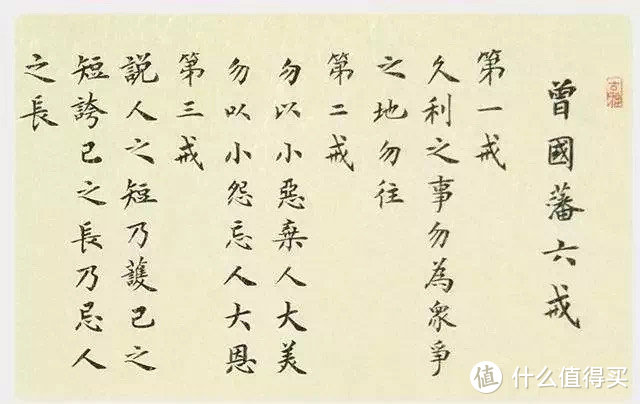 曾國藩六戒
第一戒
久利之事勿為衆爭
之地勿往
第二戒
勿以小惡棄人大美
勿以小怨忘人大恩
第三戒
説人之短乃護己之
短誇己之長乃忌人
之長
值 什么值得买